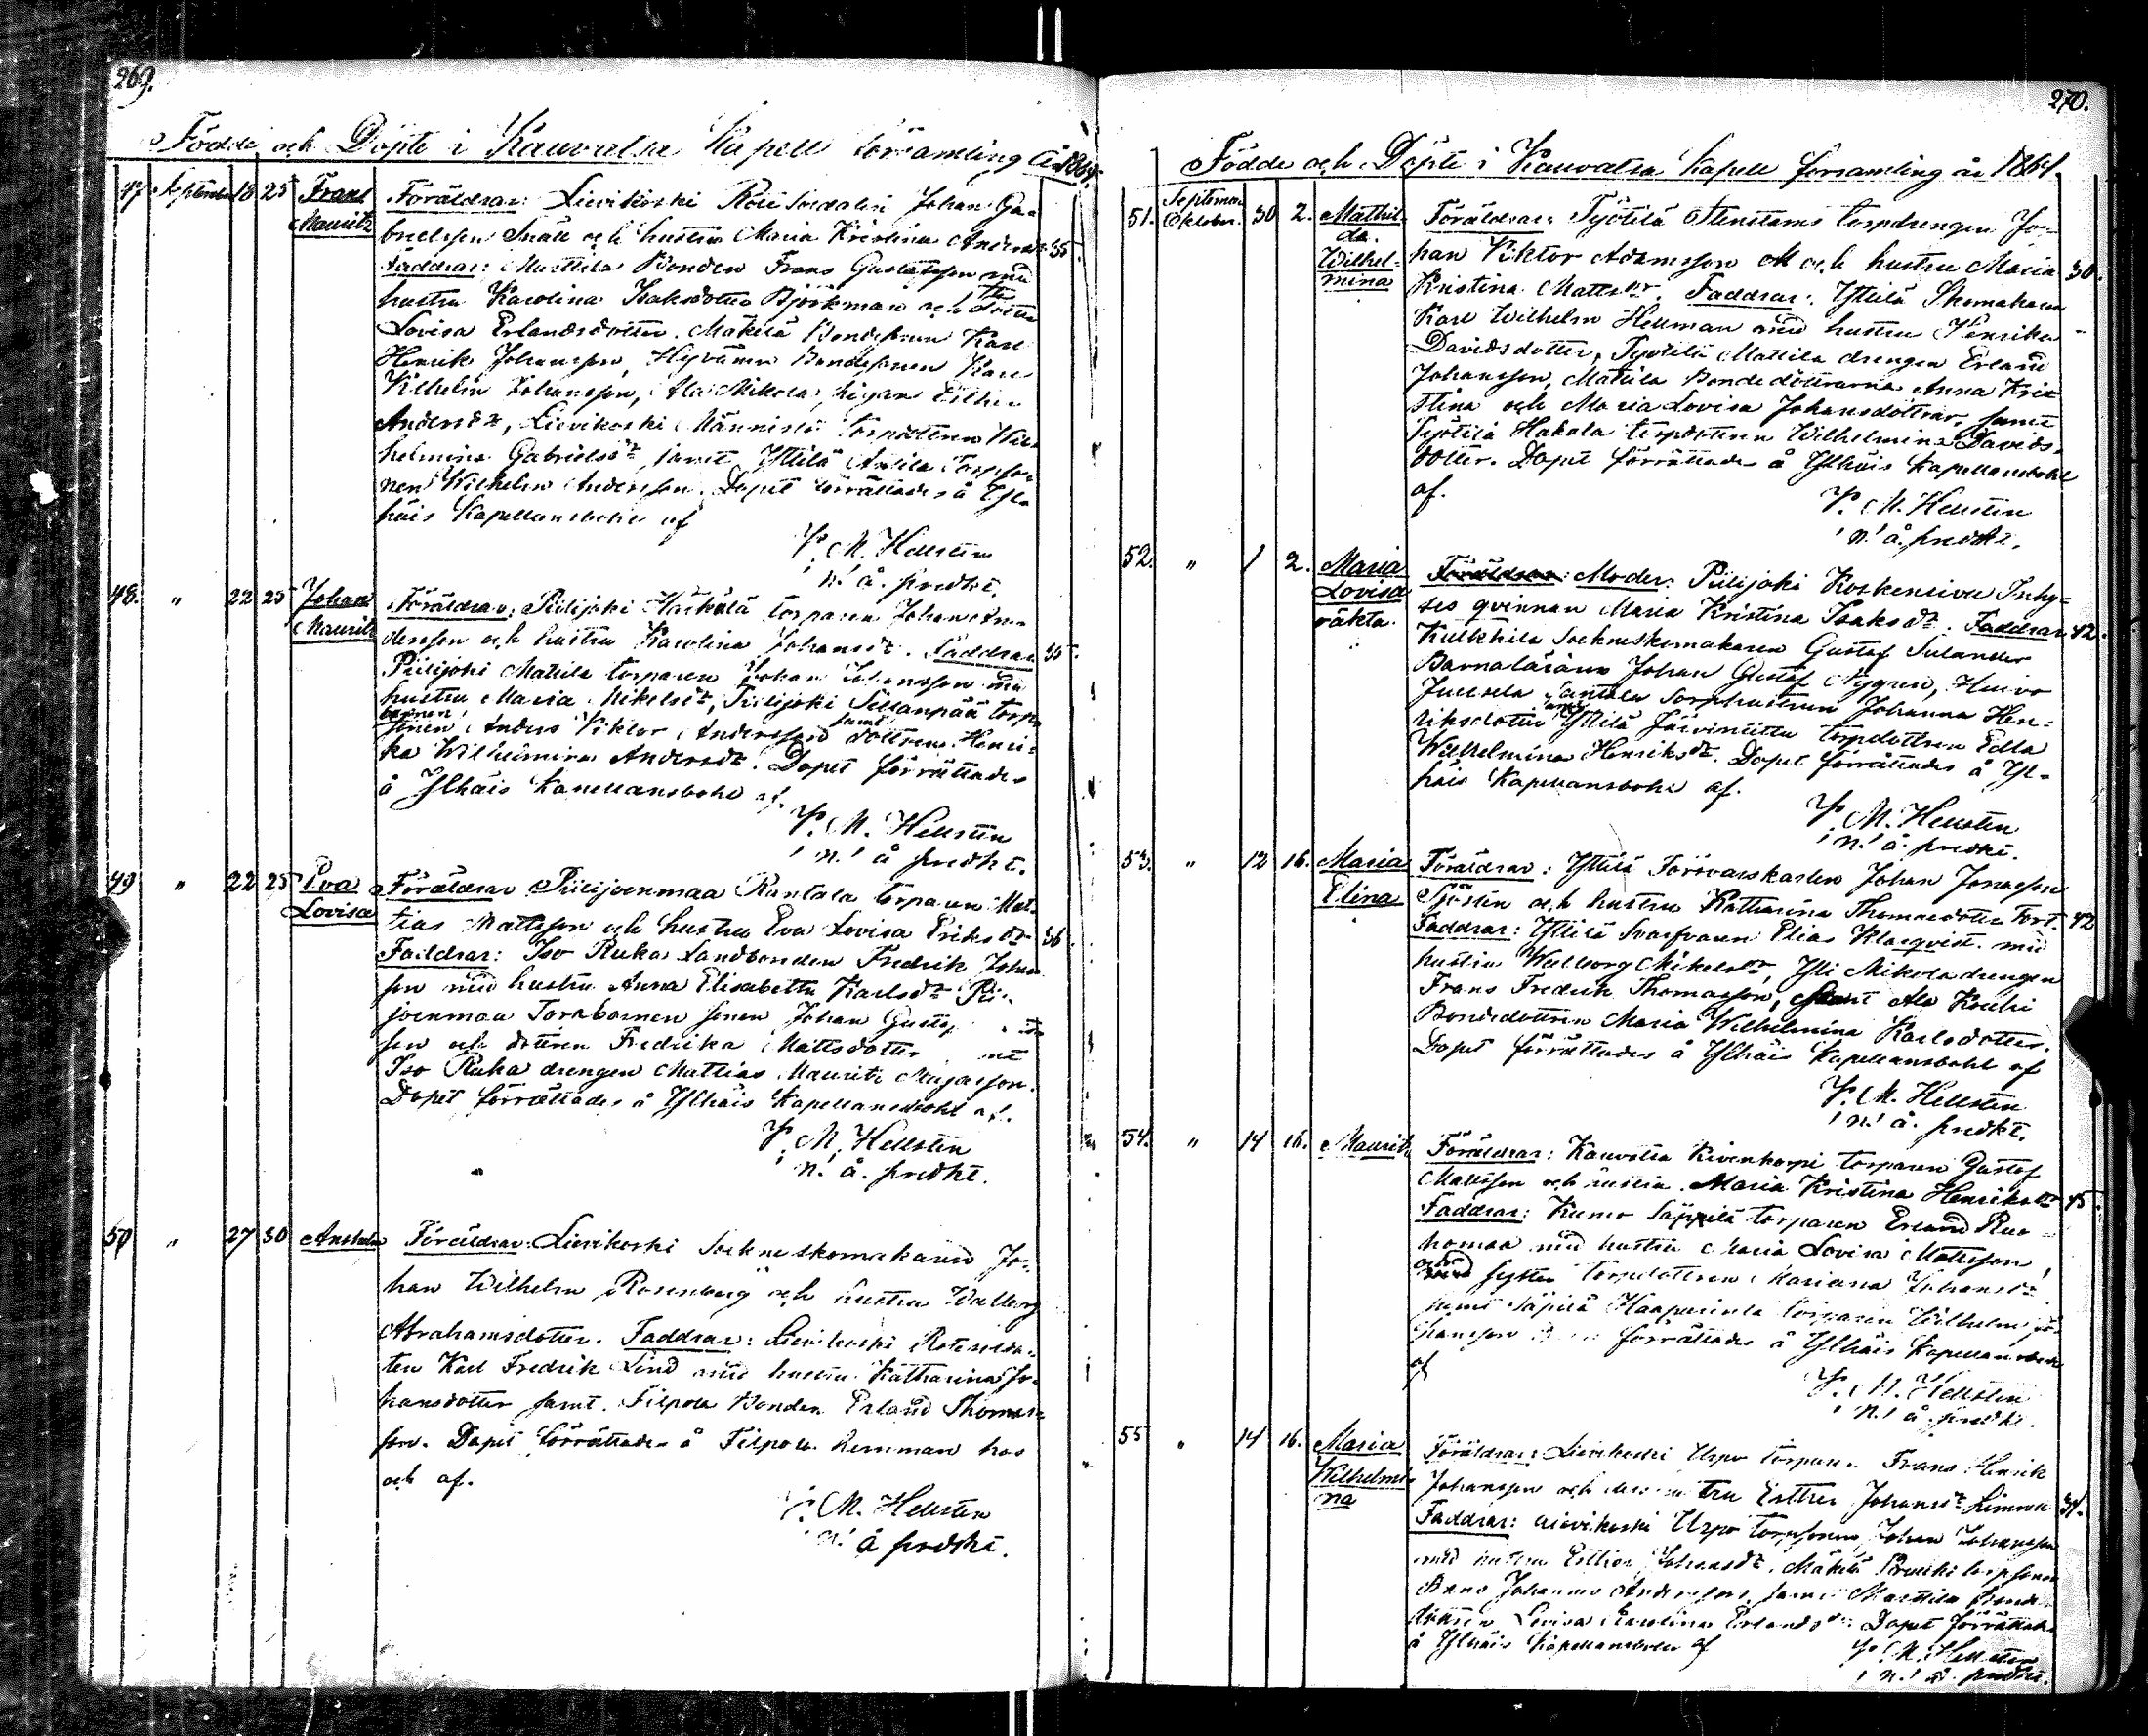 269.
Födde och Döpte i Kauvatsa Kapell församling År 1864.
47 September 18 25 Frans Mauritz
Föräldrar: Lievikoski Rote Soldaten Johan Ga-
brielsson Snäll och hustru Maria Kristina Anders 35.
Faddrar: Marttila Bonden Frans Gustafsson med
hustru Karolina Isaksdotter Björkman och dotter
Lovisa Erlandsdotter. Mäkilä Bondesonen Karl
Henrik Johansson, Hyvämä Bondesonen Karl
Wilhelm Johansson, Ala Mikola pigan Esther
Andersdr, Lievikoski Männistö torpdottren Wil-
helmina Gabrielsdr, samt Yttilä Anttila Torpso-
nen Wilhelm Andersson. Dopet förrättades å Yl-
häis Kapellansbohl af
M. Hellsten
n. å. predkt.
48. " 22 25 Johan Mauritz
Föräldrar: Piilijoki Härkälä torparen Johan An-
dersson och hustru Karolina Johansdr. Faddrar 35.
Piilijoki Mattila torparen Johan Johansson med
hustru Maria Mikelsdr, Piilijoki Sillanpää torp-
barnen
sonen Anders Viktor Andersson samt dottren Henri-
ka Wilhelmina Andersdr. Dopet förrättades
å Ylhäis Kapellansbohl af.
M. Hellsten
n. å predkt.
49 " 22 25 Eva Lovisa
Föräldrar Piilijoenmaa Rantala torparen Mat-
tias Mattsson och hustru Eva Lovisa Eriksdr 36.
Faddrar: Iso Ruka Landbonden Fredrik Johans
son med hustru Anna Elisabetta Karlsdr Pii-
joenmaa Torpbarnen sonen Johan Gustaf
son och dottren Fredrika Mattsdotter
Iso Ruka drengen Mattias Mauritz Majasson.
Dopet förrättades å Ylhäis Kapellansbohl af.
M. Hellsten
n. å. predkt.
50 " 27 30 Anshelm
Föräldrar: Lievikoski Sockneskomakaren Jo-
han Wilhelm Rosenberg och hustru Walborg
Abrahamsdotter. Faddrar: Lievikoski Rotesolda-
ten Karl Fredrik Lind med hustru Katharina Jo-
hansdotter samt Filpola Bonden Erland Thomas-
son. Dopet förrättades å Filpola hemman hos
och af.
M. Hellsten
n. å predkt.
270.
Födde och Döpte i Kauvatsa Kapell församling år 1864.
51. September Oktober. 30 2. Mathil-da. Wilhel-mina
Föräldrar: Työtilä Stenstams torpdrengen Jo-
han Viktor Adamsson och hustru Maria 30.
Kristina Mattsdr. Faddrar: Yttilä Skomakaren
Karl Wilhelm Hellman med hustru Henrika
Davidsdotter, Työtilä Mattila drengen Erland
Johansson, Mattila Bondedöttrarna Anna Kris
tina och Maria Lovisa Johansdöttrar, samt
Työtilä Hakala torpdottren Wilhelmina Davids-
dotter. Dopet förrättades å Ylhäis Kapellansbohl
af.
M. Hellsten
n. å. predkt.
52. " 1 2. Maria Lovisa oäkta.
Föräldrar: Moder: Piilijoki Koskensivu Inhy-
ses qvinnan Maria Kristina Isaksdr. Faddrar 42.
Kulkkila Sockneskomakaren Gustaf Sulander
Barnaläraren Johan Gustaf Nygren, Huivo
Juusela Santala torphustrun Johanna Hen-
riksdotter samt Yttilä Järviniittu torpdottren Edla
Wilhelmina Henriksdr. Dopet förrättades å Yl-
häis Kapellansbohl af.
M. Hellsten
n. å. predkt.
53. " 12 16. Maria Elina
Föräldrar: Yttilä Försvarskarlen Johan Jonasson
Sjösten och hustru Katharina Thomasdotter Fort. 42
Faddrar: Yttilä Svarfvaren Elias Klasqvist med
hustru Walborg Mikelsdr, Yli Mikola drengen
Frans Fredrik Thomasson, samt Ala Kouhi
Bondedottren Maria Wilhelmina Karlsdotter.
Dopet förrättades å Ylhäis Kapellansbohl af
M. Hellsten
n. å. predkt.
54. " 14 16. Mauritz
Föräldrar: Kauvatsa Kivenkorpi torparen Gustaf
Mattsson och hustru Maria Kristina Henriksdr 45.
Faddrar: Kumo Säppilä torparen Erland Ruo-
homaa med hustru Maria Lovisa Mattsson,
och
syster torpdottren Mariana Johansdr
samt Säpilä Haapaniemi torparen Wilhelm Jo-
hansson förrättades å Ylhäis Kapellansbohl
af
M. Hellsten
n. å predkt.
55 " 14 16. Maria Wilhelmi-na
Föräldrar: Lievikoski Uspo torparen Frans Henrik
Johansson och hustru Esther Johansdr 34.
Faddrar: Lievikoski Uspo torpsonen Johan Johansson
med hustru Esther Johansdr. Mäkilä torpsonen
Johannes Andersson, samt Marttila Bonde-
dottren Lovisa Karolina Erlandsdr. Dopet förrättades
å Ylhäis Kapellansbohl af
M. Hellsten
n. å. predkt.